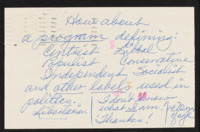 How about
a program defining:
Centrist Liberal
Populist Conservative
Independent Socialist
and other labels used in
politics.
Libertarian
I don't know
what I am!
Thanks!